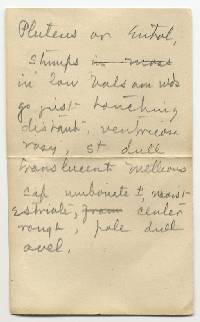 Pluteus or Entol,
stumps in moss
in low balsam wds
go just touching
distant, ventricose
rosy, st dull
translucent mellious
cap umbonate ±, moist
Estriate, from center
rough, pale dull
avel.